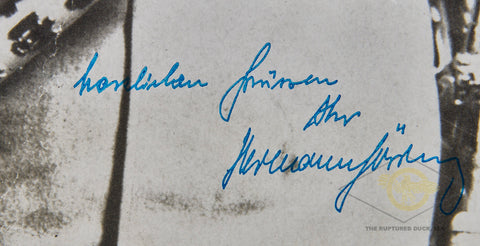 herzlichen Grüssen
Ihr
Hermann Göring
THE RUPTURED DUCK, LLC